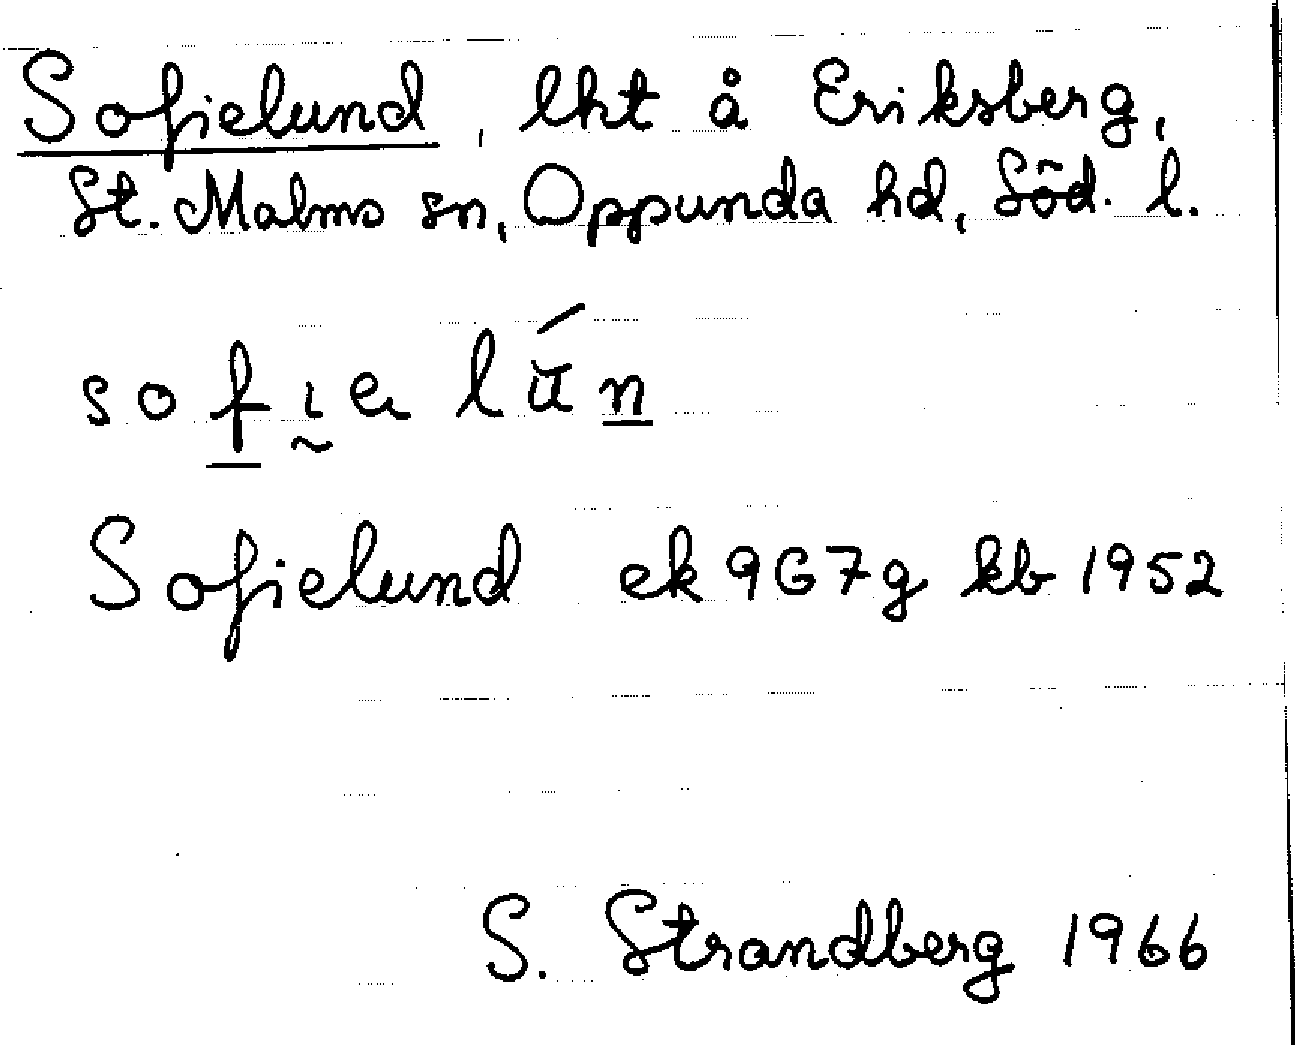 Sofielund, lht å Eriksberg,
St. Malms sn, Oppunda hd, Söd. l.
sofıelún
Sofielund ek 9G7g kb 1952
S. Strandberg 1966